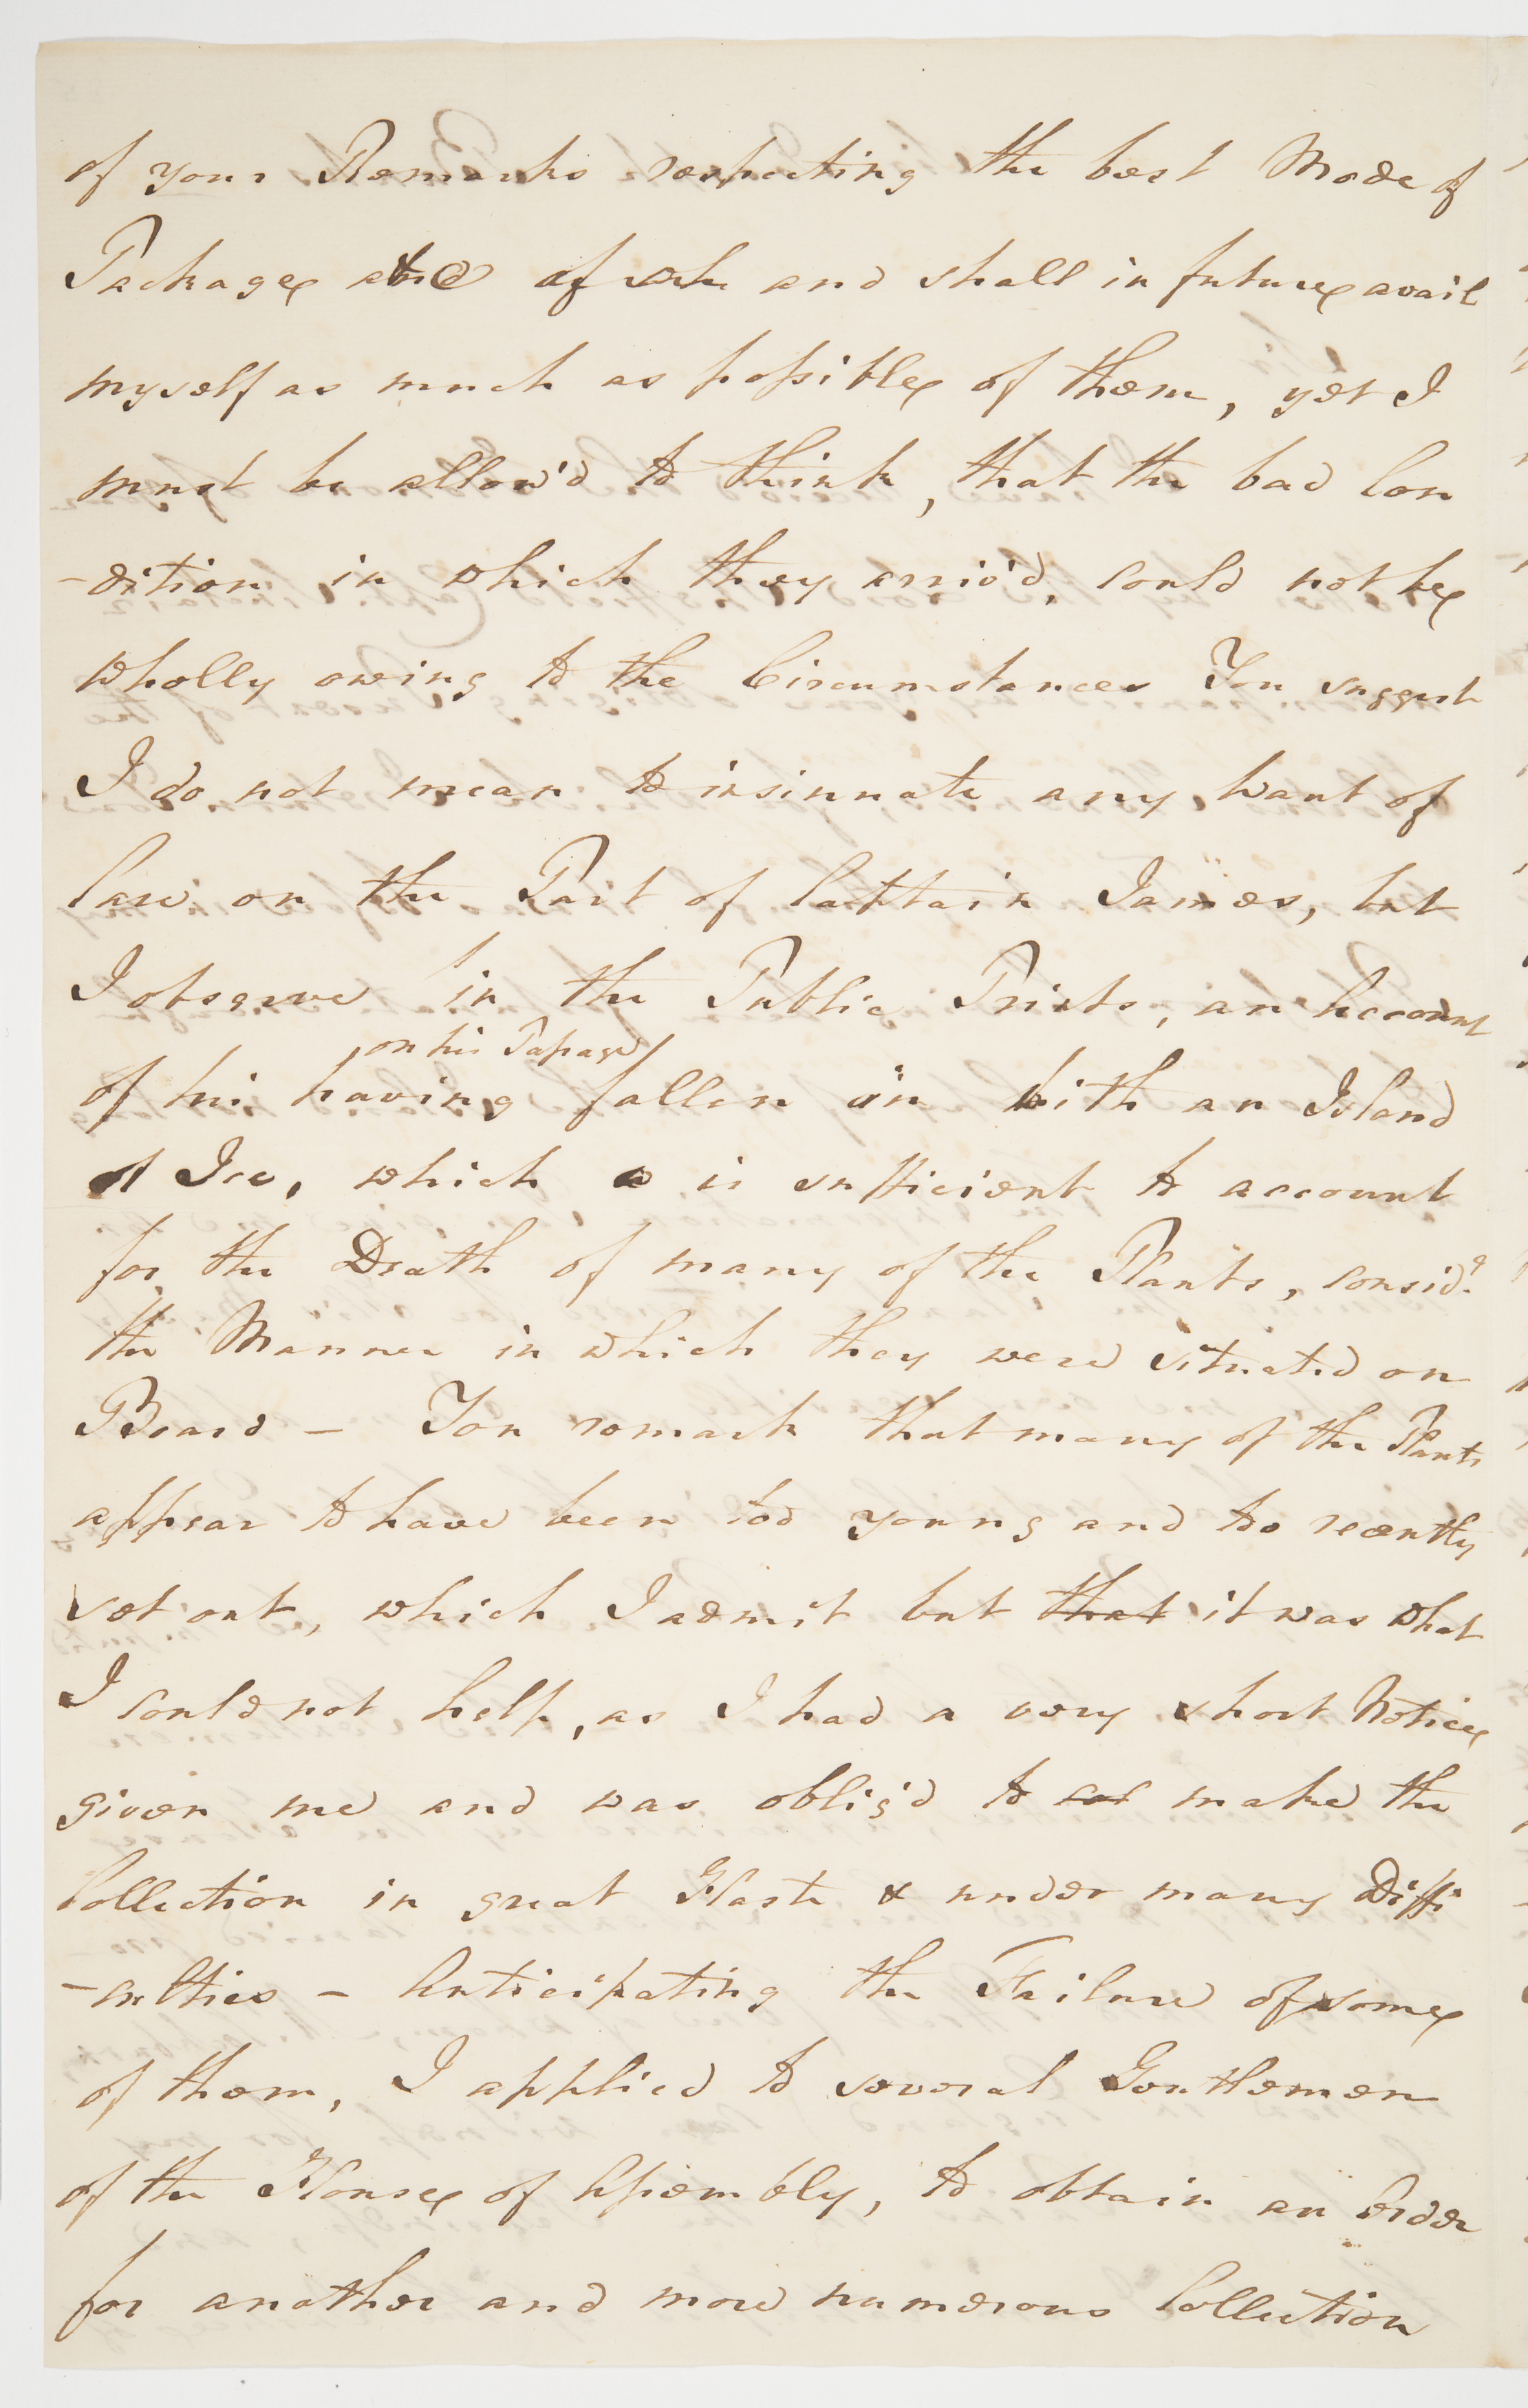 of your Remarks respecting the best Mode of
Package &c and shall in future avail
myself as much as possible of them, yet I
must be allow'd to think, that the bad Con
-dition in which they arriv'd, could not be
wholly owing to the Circumstances You suggest
I do not mean to insinuate any want of
Care on the Part of Captain James, but
I observe in the Public Prints, an Account
on his Passage
of his having fallen in with an Island
of Ice, which is sufficient to account
for the Death of many of the Plants, consid.g
the Manner in which they were situated on
Board – You remark that many of the Plants
appear to have been too young and too recently
set out, which I admit but that it was what
I could not help, as I had a very short Notice
given me and was oblig'd to make the
Collection in great Haste & under many Diffi
-culties – Anticipating the Failure of some
of them, I applied to several Gentlemen
of the House of Assembly, to obtain an Order
for another and more numerous Collection